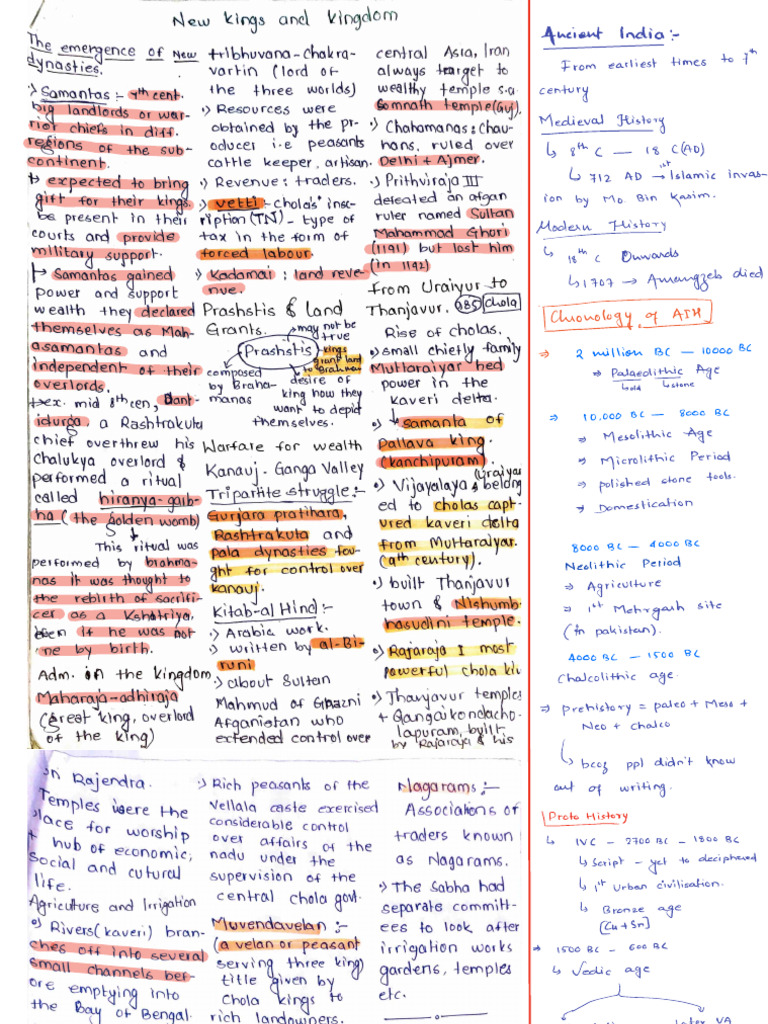 New kings and kingdom
The emergence of New
dynasties.
Samantas :- 7th cent.
big landlords or war-
rior chiefs in diff.
regions of the sub-
continent.
expected to bring
gift for their kings,
be present in their
courts and provide
military support.
Samantas gained
power and support
wealth they declared
themselves as Mah-
asamantas and
independent of their
overlords.
ex. mid 8th cen, Dant-
idurga, a Rashtrakuta
chief overthrew his
Chalukya overlord &
performed a ritual
called hiranya-garb-
ha (the golden womb)
This ritual was
performed by brahma-
nas it was thought to
the rebirth of sacrifi-
cer as a Kshatriya,
even if he was not
ne by birth.
Adm. in the kingdom
Maharaja-adhiraja
(Great king, overlord
of the king)
tribhuvana-chakra-
vartin (lord of
the three worlds)
Resources were
obtained by the pr-
oducer i.e peasants
cattle keeper, artisan.
Revenue: traders.
vetti - Chola's insc-
ription (TN) - type of
tax in the form of
forced labour.
Kadamai : land reve-
nue.
Prashstis & land
Grants.
may not be
true
Prashstis
kings
grant land
to Brahman
composed
by Braha-
manas
desire of
king how they
want to depid
themselves.
Warfare for wealth
Kanauj - Ganga Valley
Tripartite struggle :-
Gurjara pratihara,
Rashtrakuta and
pala dynasties fou-
ght for control over
kanauj.
Kitab-al Hind :-
Arabic work.
written by al-Bi-
runi
about Sultan
Mahmud of Ghazni
Afganistan who
extended control over
central Asia, Iran
always target to
wealthy temple s.a
Somnath temple (Guj).
Chahamanas : Chau-
hans, ruled over
Delhi + Ajmer.
Prithviraja III
defeated an afgan
ruler named Sultan
Mahammad Ghori
(1191) but lost him
(in 1192)
From Uraiyur to
Thanjavur. 985 Chola
Rise of cholas.
small chiefly family
Muttaraiyar hed
power in the
kaveri delta.
samanta of
Pallava king.
(kanchipuram).
(Uraiyar
Vijayalaya & belong
ed to cholas capt-
ured kaveri delta
from Muttaraiyar.
(9th century).
built Thanjavur
town & Nishumb
hasudini temple.
Rajaraja I most
powerful chola kiv
Thanjavur temples
+ Gangaikondacho-
lapuram, built
by Rajaraja & his
on Rajendra.
Temples were the
place for worship
+ hub of economic,
social and cutural
life.
Agriculture and Irrigation
Rivers (kaveri) bran-
ches off into several
small channels bef-
ore emptying into
the Bay of Bengal.
Rich peasants of the
Vellala caste exercised
considerable control
over affairs of the
nadu under the
supervision of the
central chola govt.
Muvendavelan :-
(a velan or peasant
serving three king)
title given by
Chola kings to
rich landowners.
Nagarams :-
Associations of
traders known
as Nagarams.
The Sabha had
separate committ-
ees to look after
irrigation works
gardens, temples
etc.
Ancient India :-
From earliest times to 7th
century
Medieval History
8th C — 18 C (AD)
712 AD → 1st Islamic invas-
ion by Mo. Bin Kasim.
Modern History
18th C Onwards
1707 → Aurangzeb died
Chronology of AIH
2 million BC — 10000 BC
Palaeolithic Age
old stone
10,000 BC — 8000 BC
Mesolithic Age
Microlithic Period
polished stone tools.
Domestication
8000 BC — 4000 BC
Neolithic Period
Agriculture
1st Mehrgarh site
(in pakistan).
4000 BC — 1500 BC
Chalcolithic age.
prehistory = paleo + Meso +
Neo + chalco
bcoz ppl didn't know
out of writing.
Proto History
IVC - 2700 BC - 1800 BC
Script - yet to deciphered
1st Urban civilisation.
Bronze age
[Cu + Sn]
1500 BC - 600 BC
Vedic age
later VA